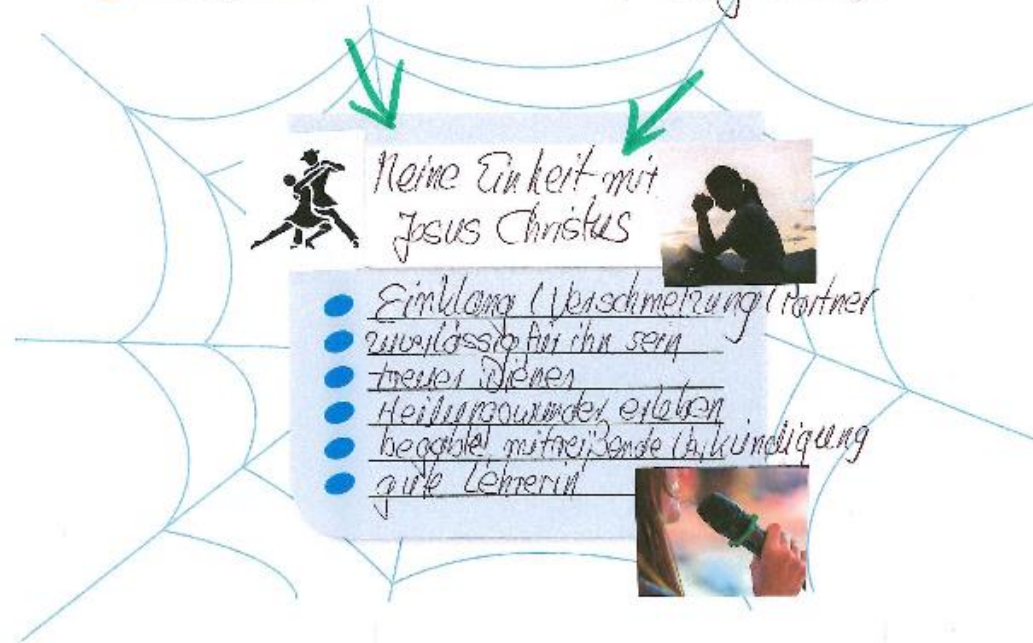 Meine Einheit mit
Jesus Christus
Einklang / Verschmelzung / Partner
zuverlässig für ihn sein
treuer Diener
Heilungswunder erleben
begabte, mitreißende Verkündigung
gute Lehrerin